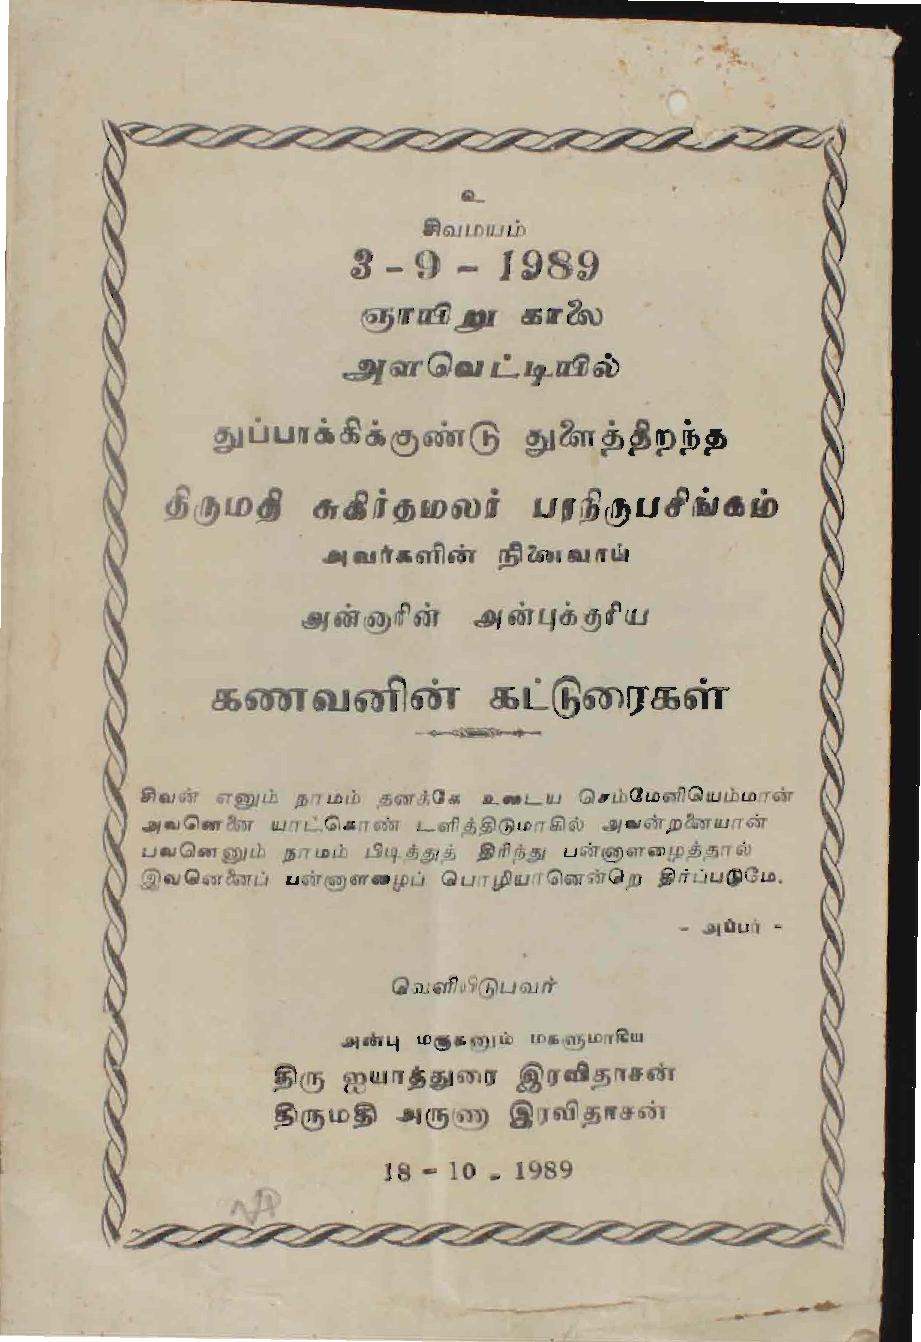 உ
சிவமயம்
3 - 9 - 1989
ஞாயிறு காலை
அளவெட்டியில்
துப்பாக்கிக்குண்டு துளைத்திறந்த
திருமதி சுகிர்தமலர் பரநிருபசிங்கம்
அவர்களின் நினைவாய்
அன்னாரின் அன்புக்குரிய
கணவனின் கட்டுரைகள்
சிவன் எனும் நாமம் தனக்கே உடைய செம்மேனியெம்மான்
அவனெனை யாட்கொண் டளித்திடுமாகில் அவன்றனையான்
பவனெனும் நாமம் பிடித்துத் திரிந்து பன்னாளழைத்தால்
இவனெனைப் பன்னாளழைப் பொழியானென்றெ திர்ப்படுமே.
- அப்பர் -
வெளியிடுபவர்
அன்பு மருகனும் மகளுமாகிய
திரு ஐயாத்துரை இரவிதாசன்
திருமதி அருணா இரவிதாசன்
18 - 10 - 1989